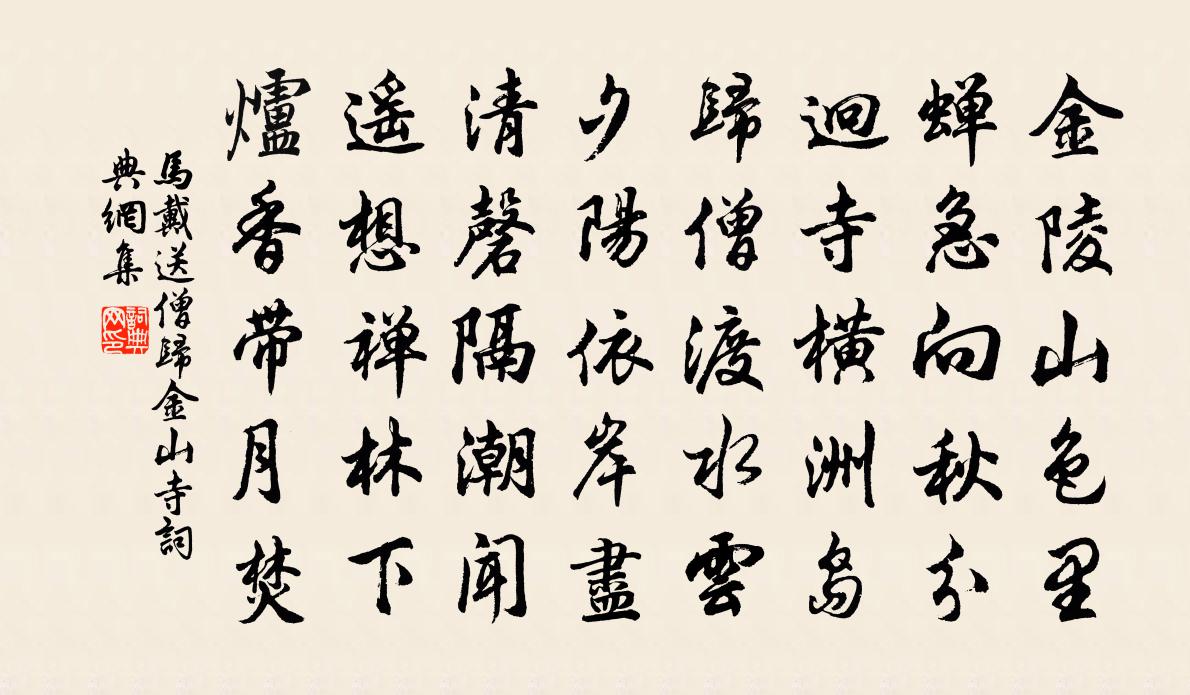 金陵山色里
蝉急向秋分
迥寺橫洲島
歸僧渡水雲
夕陽依岸盡
清磬隔潮聞
遥想禅林下
爐香帶月焚
馬戴送僧歸金山寺詞
典網集
詞典
网印